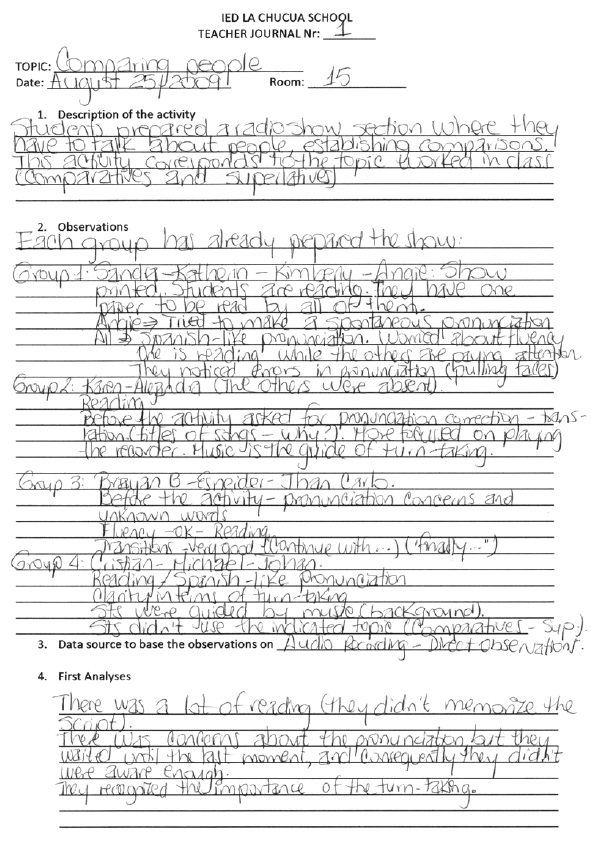 IED LA CHUCUA SCHOOL
TEACHER JOURNAL Nr: 1
TOPIC: Comparing people
Date: August 25/2009 Room: 15
1. Description of the activity
Students prepared a radio show section where they
have to talk about people, establishing comparisons.
This activity corresponds to the topic worked in class
(Comparatives and superlatives)
2. Observations
Each group has already prepared the show:
Group 1: Sandra - Katherin - Kimberly - Angie: Show
printed. Students are reading. They have one
paper to be read by all of them.
Angie ⇒ Tried to make a spontaneous pronunciation
All ⇒ Spanish-like pronunciation. Worried about fluency
One is reading while the others are paying attention.
They noticed errors in pronunciation (pulling faces)
Group 2: Karen - Alejandra (The others were absent).
Reading
Before the activity asked for pronunciation correction - trans-
lation (titles of songs - why?). More focused on playing
the recorder. Music is the guide of turn-taking.
Group 3: Brayan B - Esneider - Jhan Carlo.
Before the activity - pronunciation concerns and
unknown words
Fluency - OK - Reading
Transitions - very good (Continue with...) ("finally...")
Group 4: Cristian - Michael - Johan.
Reading / Spanish-like pronunciation
Clarity in terms of turn-taking
Sts were guided by music (background).
Sts didn't use the indicated topic (Comparatives - Sup.).
3. Data source to base the observations on Audio Recording - Direct Observations.
4. First Analyses
There was a lot of reading (they didn't memorize the
script).
There was concerns about the pronunciation but they
waited until the last moment, and consequently they didn't
were aware enough.
They recognized the importance of the turn-taking.